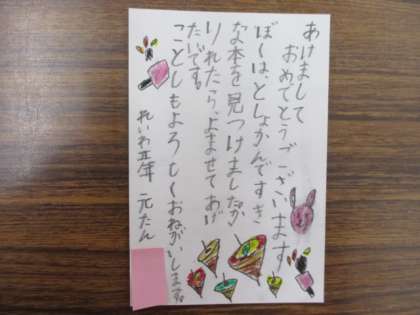 あけまして
おめでとうございます
ぼくは、としょかんですき
な本を見つけましたか
りれたら、よませてあげ
たいです。
ことしもよろしくおねがいします。
れいわ五年 元たん